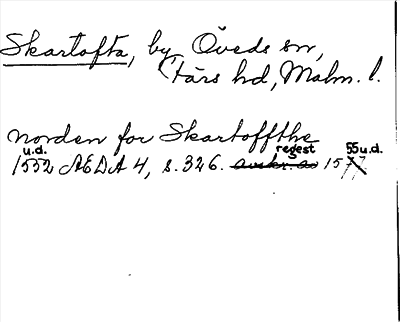 Skartofta, by, Öveds sn,
Färs hd, Malm. l.
norden for Skartoffthe
u.d. regest 55 u.d.
1552 AEDA 4, s. 326. avskr. a. 15